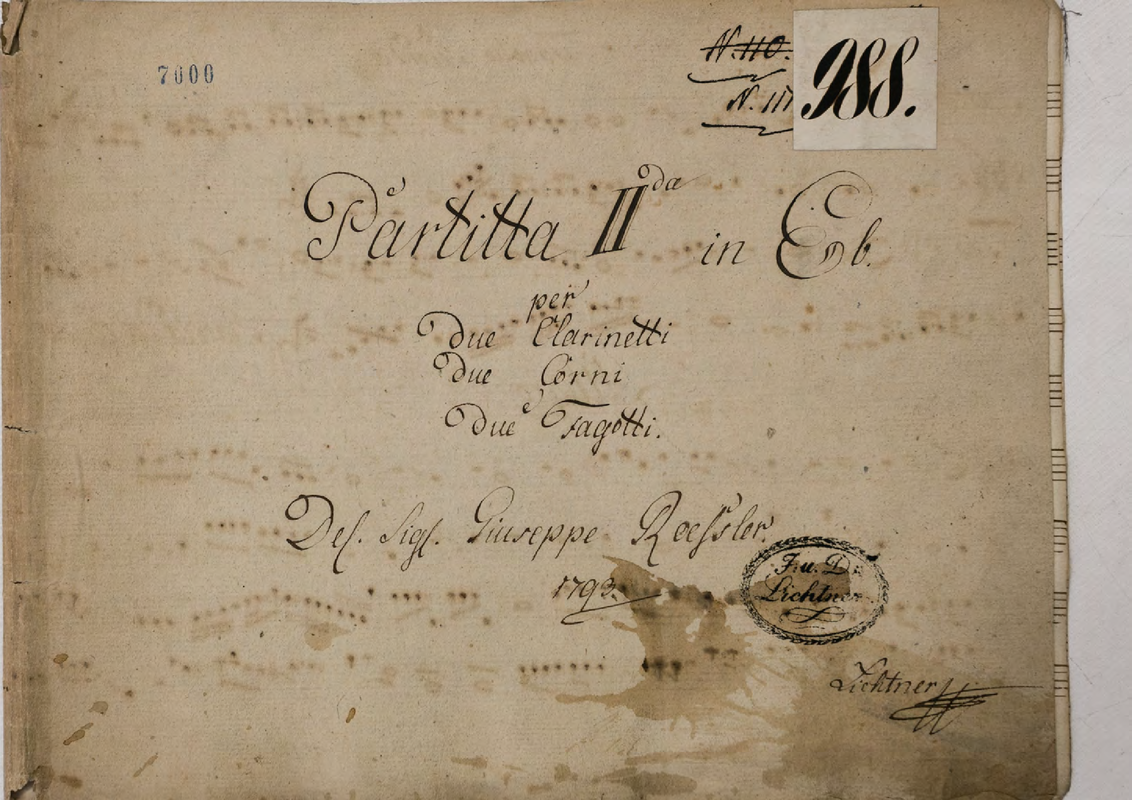 7000
N. 110.
N. 111
988.
Partitta II da in Eb.
per
Due Clarinetti
Due Corni
Due Fagotti.
Del. Sigl. Giuseppe Roessler.
1793.
J. u. D.
Lichtner
Lichtner